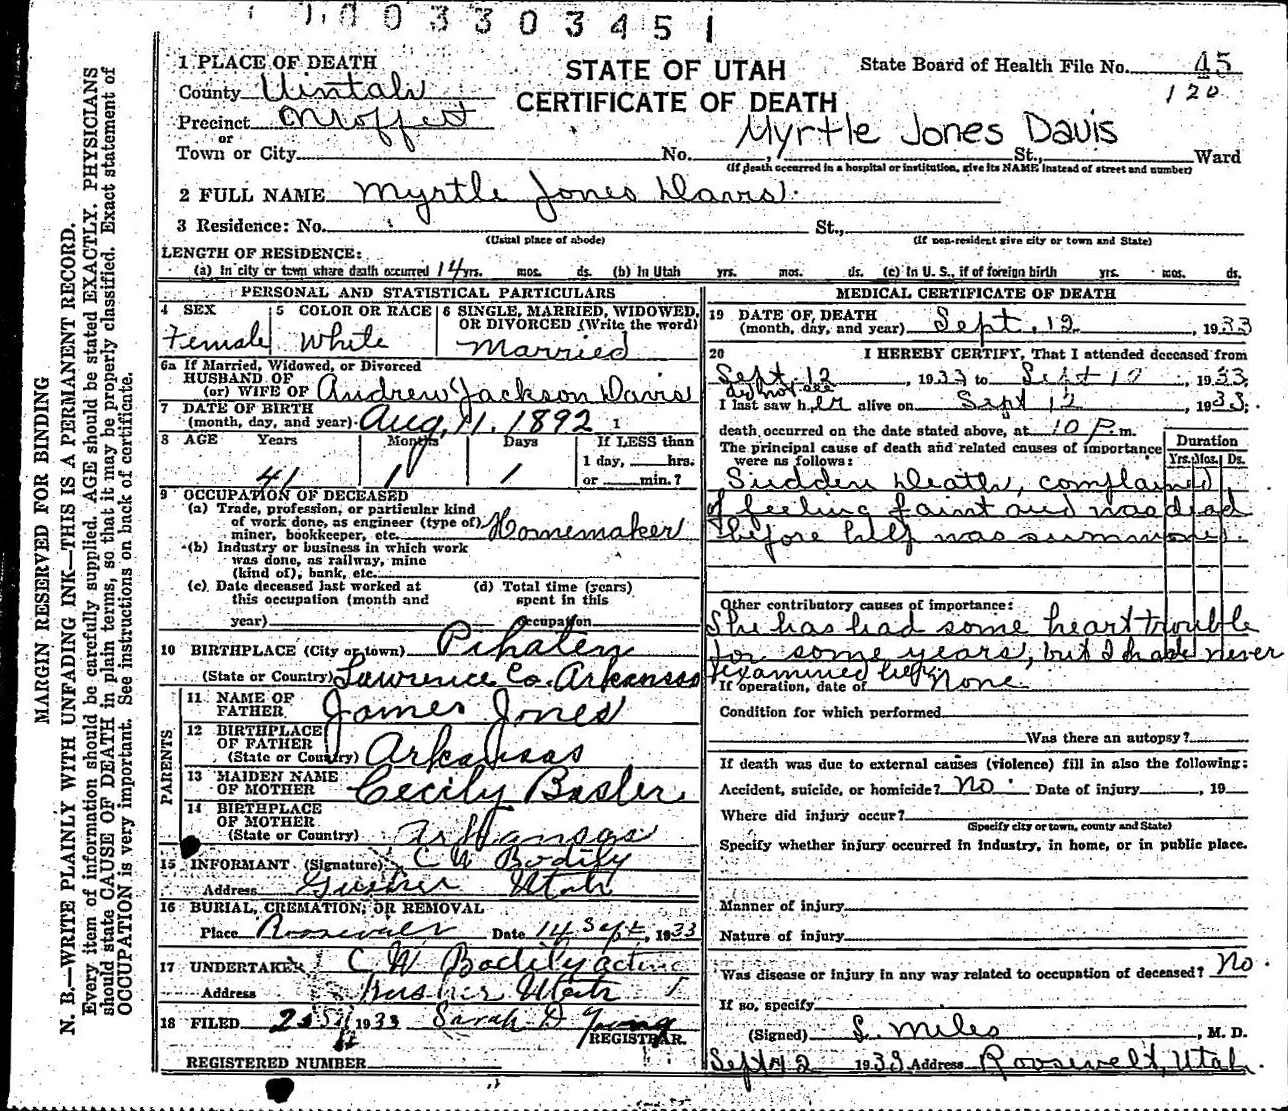 003303451
1 PLACE OF DEATH
STATE OF UTAH
CERTIFICATE OF DEATH
State Board of Health File No. 45
120
County Uintah
Precinct Moffett
or
Town or City No. St., Ward
Myrtle Jones Davis
(If death occurred in a hospital or institution, give its NAME instead of street and number)
2 FULL NAME Myrtle Jones Davis
3 Residence: No. St.,
(Usual place of abode) (If non-resident give city or town and State)
LENGTH OF RESIDENCE:
(a) In city or town where death occurred 14 yrs. mos. ds. (b) In Utah yrs. mos. ds. (c) In U. S., if of foreign birth yrs. mos. ds.
PERSONAL AND STATISTICAL PARTICULARS
4 SEX Female
5 COLOR OR RACE White
6 SINGLE, MARRIED, WIDOWED, OR DIVORCED (Write the word) Married
6a If Married, Widowed, or Divorced
HUSBAND OF
(or) WIFE OF Andrew Jackson Davis
7 DATE OF BIRTH
(month, day, and year) Aug, 11. 1892
8 AGE Years Months Days If LESS than
41 1 1 1 day, hrs.
or min.?
9 OCCUPATION OF DECEASED
(a) Trade, profession, or particular kind
of work done, as engineer (type of)
miner, bookkeeper, etc. Homemaker
(b) Industry or business in which work
was done, as railway, mine
(kind of), bank, etc.
(c) Date deceased last worked at
this occupation (month and
year)
(d) Total time (years)
spent in this
occupation
10 BIRTHPLACE (City or town)
(State or Country) Lawrence Co. Arkansas
PARENTS
11 NAME OF
FATHER James Jones
12 BIRTHPLACE
OF FATHER
(State or Country) Arkansas
13 MAIDEN NAME
OF MOTHER Cecily Basler
14 BIRTHPLACE
OF MOTHER
(State or Country) Arkansas
15 INFORMANT (Signature) C W Bodily
Address Gusher Utah
16 BURIAL, CREMATION, OR REMOVAL
Place Roosevelt Date 14 Sept, 1933
17 UNDERTAKER C W Bodily acting
Address Gusher Utah
18 FILED 1933 Sarah D Young
REGISTRAR.
REGISTERED NUMBER
MEDICAL CERTIFICATE OF DEATH
19 DATE OF DEATH
(month, day, and year) Sept. 12, 1933
20 I HEREBY CERTIFY, That I attended deceased from
Sept. 12, 1933 to Sept 12, 1933.
did not see
I last saw her alive on Sept 12, 1933;
death occurred on the date stated above, at 10 P. m.
The principal cause of death and related causes of importance
were as follows:
Duration
Yrs. Mos. Ds.
Sudden death, complained
of feeling faint and was dead
before help was summoned.
Other contributory causes of importance:
She has had some heart trouble
for some years, but I have never
examined her.
If operation, date of None
Condition for which performed
Was there an autopsy?
If death was due to external causes (violence) fill in also the following:
Accident, suicide, or homicide? No Date of injury , 19
Where did injury occur?
(Specify city or town, county and State)
Specify whether injury occurred in industry, in home, or in public place.
Manner of injury
Nature of injury
Was disease or injury in any way related to occupation of deceased? No.
If so, specify
(Signed) L. Miles, M. D.
Sept 12 1933 Address Roosevelt, Utah.
MARGIN RESERVED FOR BINDING
N. B.—WRITE PLAINLY WITH UNFADING INK—THIS IS A PERMANENT RECORD.
Every item of information should be carefully supplied. AGE should be stated EXACTLY. PHYSICIANS
should state CAUSE OF DEATH in plain terms, so that it may be properly classified. Exact statement of
OCCUPATION is very important. See instructions on back of certificate.